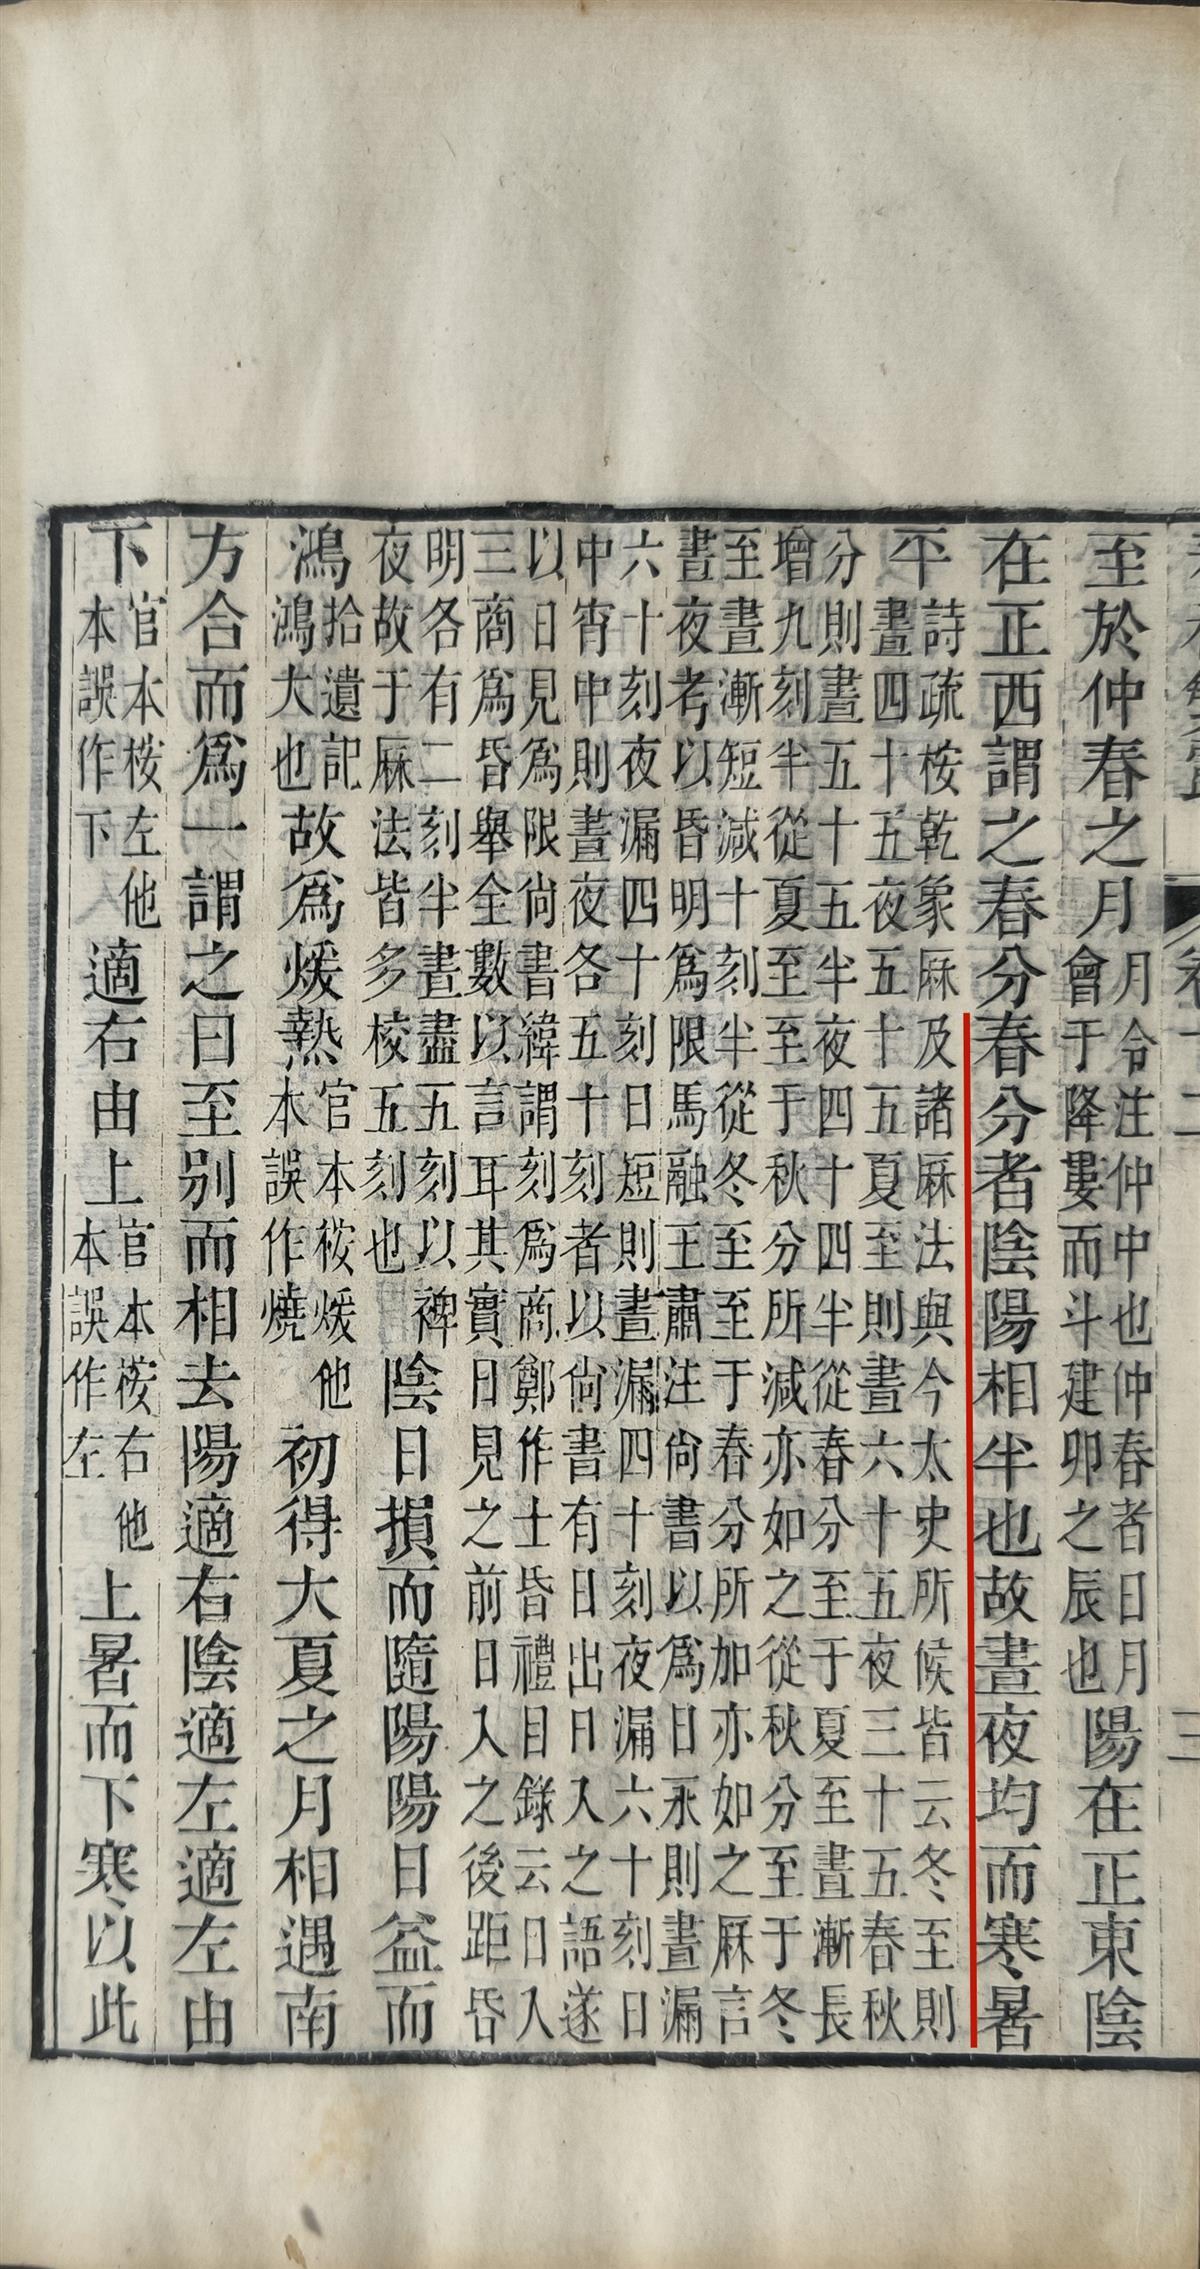 卷十二 三
至於仲春之月月令注仲中也仲春者日月會于降婁而斗建卯之辰也陽在正東陰
在正西謂之春分春分者陰陽相半也故晝夜均而寒暑
平詩疏桉乾象厤及諸厤法與今太史所候皆云冬至則
晝四十五夜五十五夏至則晝六十五夜三十五春秋
分則晝五十五半夜四十四半從春分至于夏至晝漸長
增九刻半從夏至至于秋分所減亦如之從秋分至于冬
至晝漸短減十刻半從冬至至于春分所加亦如之厤言
晝夜考以昏明爲限馬融王肅注尚書以爲日永則晝漏
六十刻夜漏四十刻日短則晝漏四十刻夜漏六十刻日
中宵中則晝夜各五十刻者以尚書有日出日入之語遂
以日見爲限尚書緯謂刻爲商鄭作士昏禮目錄云日入
三商爲昏舉全數以言耳其實日見之前日入之後距昏
明各有二刻半晝盡五刻以裨
夜故于厤法皆多校五刻也陰日損而隨陽陽日益而
鴻拾遺記鴻大也故爲煖熱官本桉煖他本誤作燒初得大夏之月相遇南
方合而爲一謂之曰至别而相去陽適右陰適左適左由
下官本桉左他本誤作下適右由上官本桉右他本誤作左上暑而下寒以此